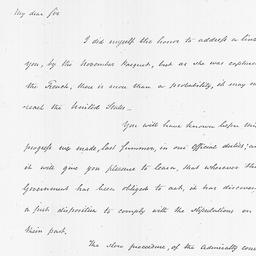 My dear Sir
I did myself the honor to address a line
you, by the November Packet, but as she was captured
the French, there is more than a probability, it may n
reach the United States.
You will have known before this
progress we made, last Summer, in our official duties; an
it will give you pleasure to learn, that wherever the
Government has been obliged to act, it has discovere
a just disposition to comply with the stipulations on
their part.
The slow procedure, of the Admiralty cour